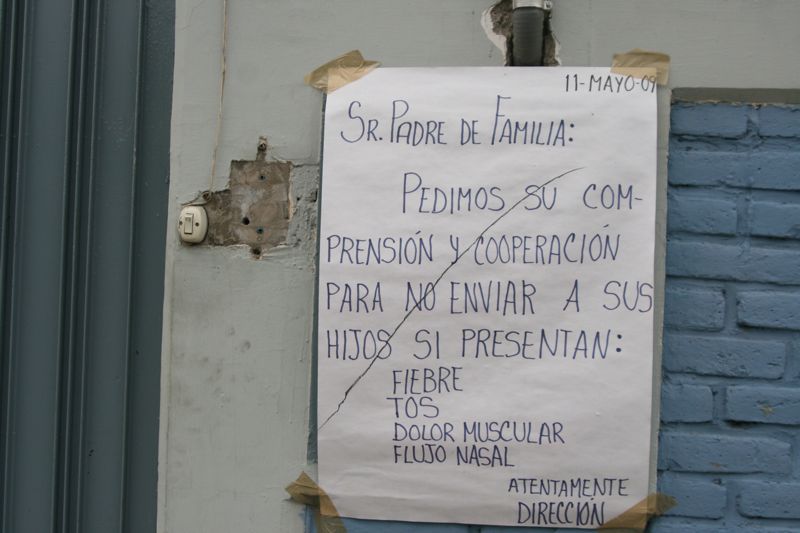 11-MAYO-09
SR. PADRE DE FAMILIA:
PEDIMOS SU COM-
PRENSIÓN Y COOPERACIÓN
PARA NO ENVIAR A SUS
HIJOS SI PRESENTAN:
FIEBRE
TOS
DOLOR MUSCULAR
FLUJO NASAL
ATENTAMENTE
DIRECCIÓN